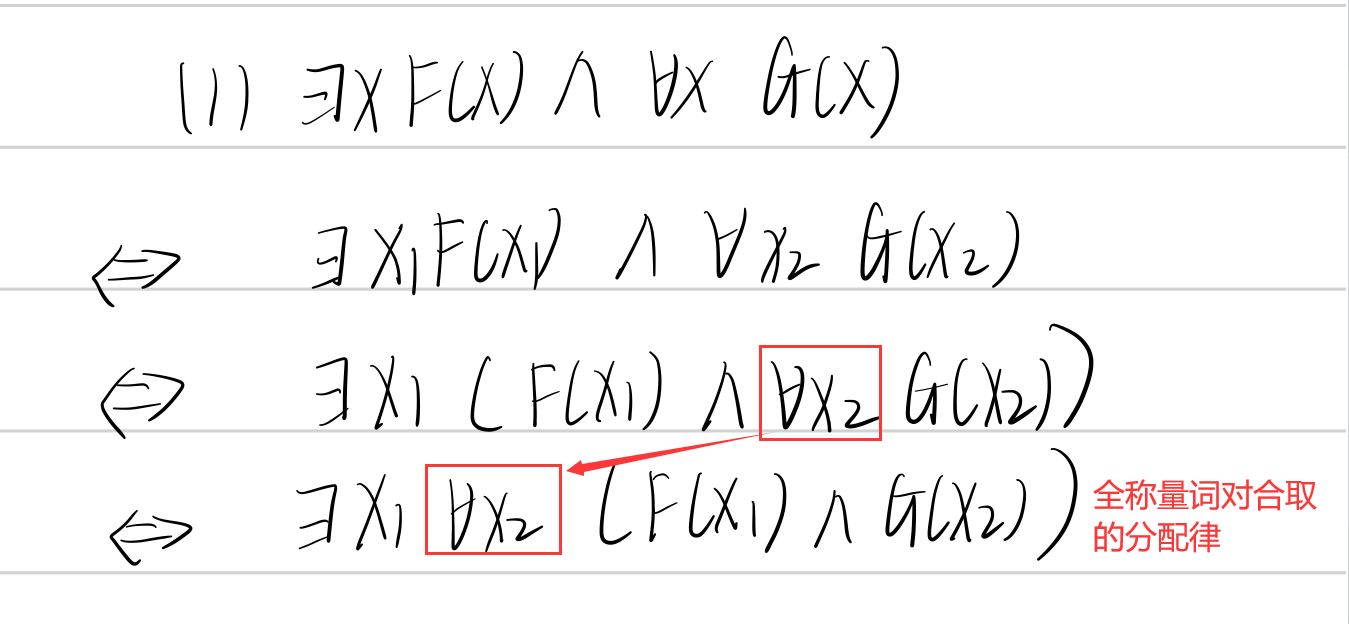 (1) ∃x F(x) ∧ ∀x G(x)
⇔ ∃x₁F(x₁) ∧ ∀x₂ G(x₂)
⇔ ∃x₁ (F(x₁) ∧ ∀x₂ G(x₂))
⇔ ∃x₁ ∀x₂ (F(x₁) ∧ G(x₂))
全称量词对合取
的分配律